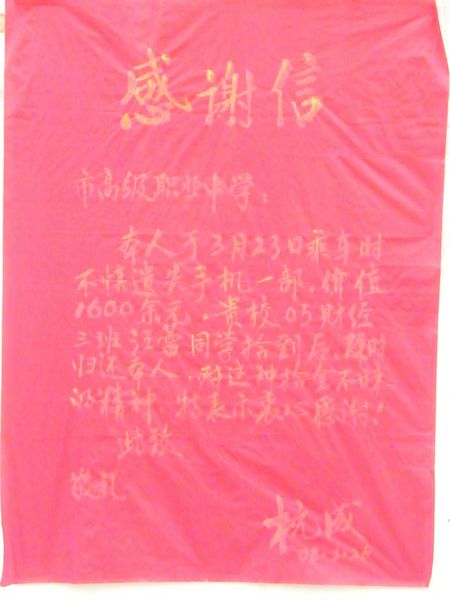 感谢信
市高级职业中学：
本人于3月23日乘车时
不慎遗失手机一部，价值
1600余元，贵校05财经
三班汪蕾同学拾到后，及时
归还本人，对这种拾金不昧
的精神，特表示衷心感谢！
此致
敬礼
杭成